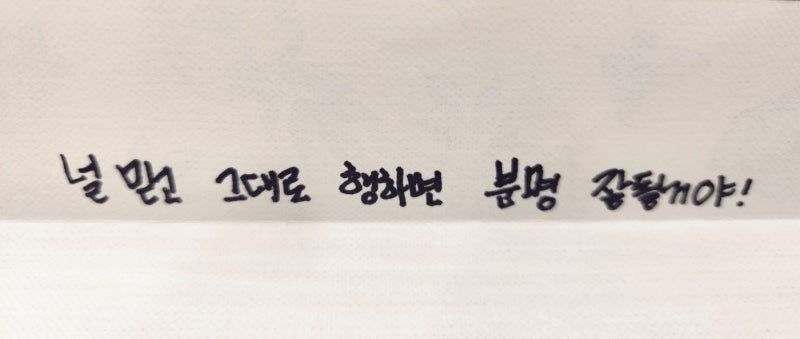 널 믿고 그대로 행하면 분명 잘될거야!